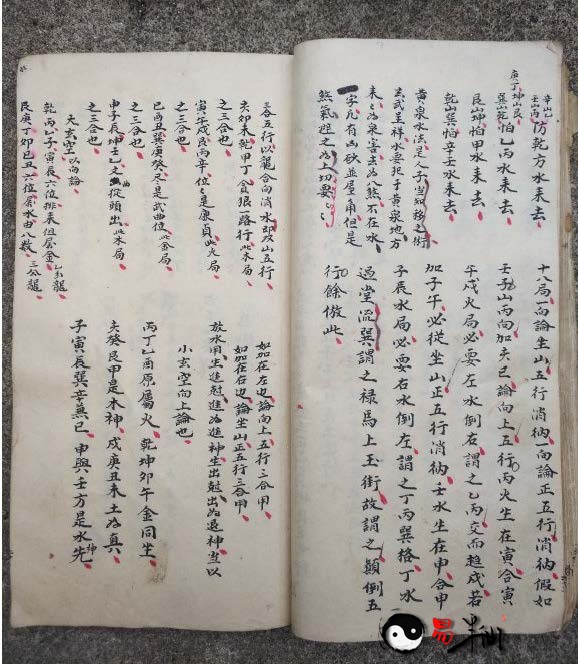 庚丁坤山艮
辛山乙
壬山丙 防乾方水来去
巽山乾怕乙丙水来去
艮山坤怕甲水来去
乾山巽怕辛壬水来去
黄泉水法是人子當知移之街
玄武呈祥水要犯于黄泉地方
一字凡有山欹並屋角但是
煞氣避之為上切要
十局一向論坐山五行消納一向論正五行消納假如
壬子山丙向加亥巳論向上五行丙火生在寅合寅
午戌火局必要左水倒右謂之乙丙交而趋戌若
加子午必從坐山正五行消納壬水生在申合申
子辰水局必要右水倒左謂之丁丙巽格丁水
過堂流巽謂之禄馬上玉街故謂之顛倒五
行餘倣此
三合五行以龍合向消水即及山五行
亥卯未乾甲丁貪狼一路行此木局
之三合也
寅午戌艮丙辛位之是廉貞此火局
之三合也
巳酉丑巽庚癸尽是武曲位此金局
之三合也
申子辰坤壬乙文曲從頭出此水局
之三合也
大玄空以向論
乾丙乙子寅辰六位排来但屬金乙金龍
艮庚丁卯巳丑六位屬水由八数三公龍
如加在左边論向上五行三合甲
如加在右边論坐山正五行三合甲
放水用生進尅進為進神生出尅出為退神当以
小玄空向上論也
丙丁乙酉原屬火乾坤卯午金同坐
亥癸艮甲是木神戌庚丑未土為真
子寅辰巽辛無巳申與壬方是水神先
易半仙